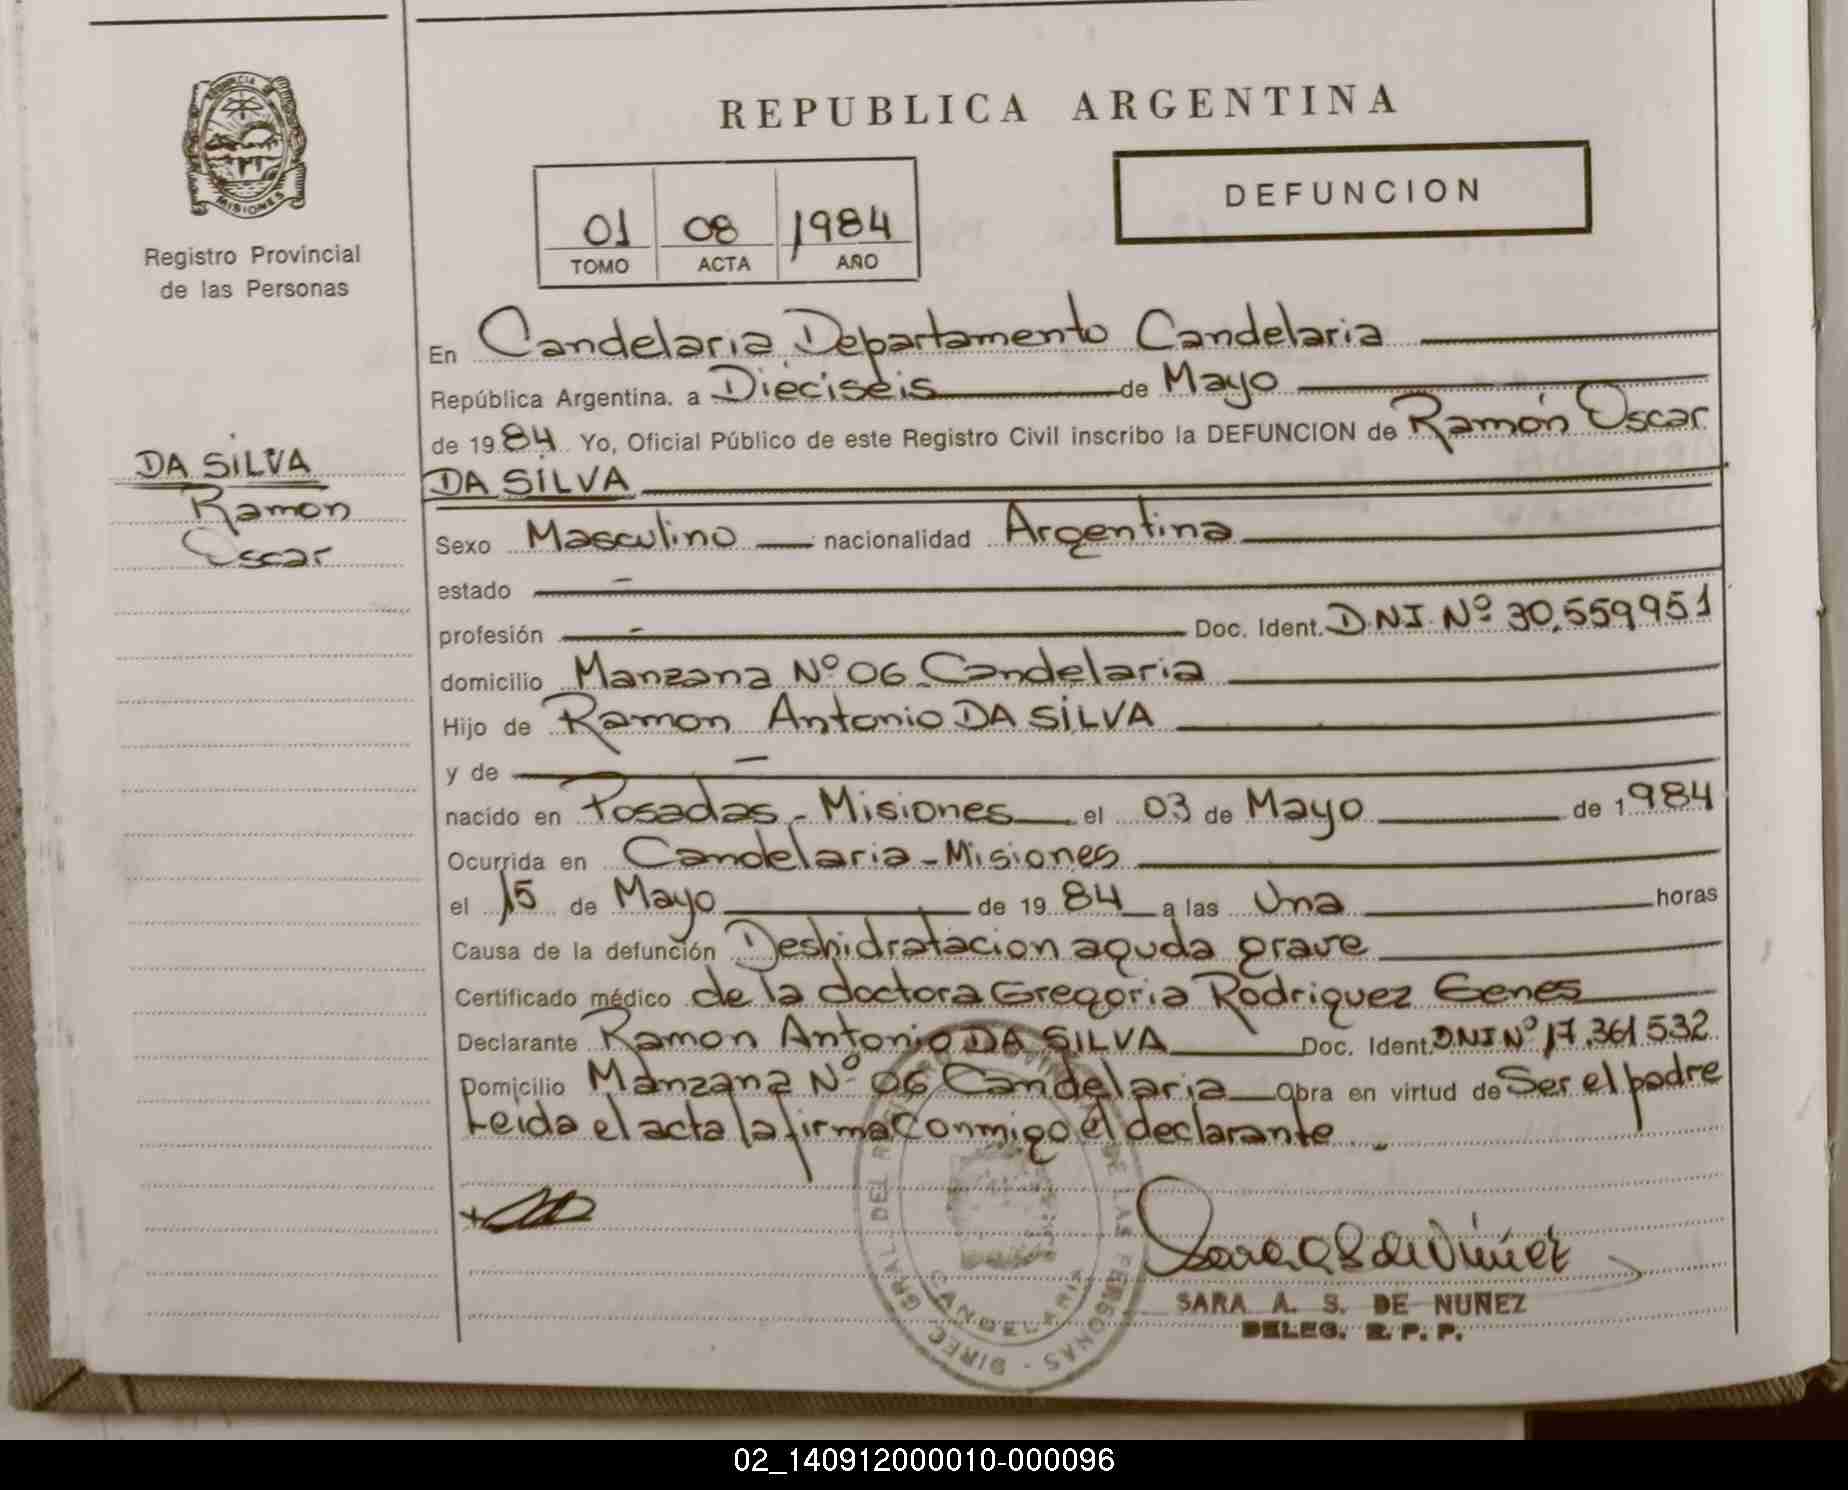 PROVINCIA DE
MISIONES
Registro Provincial
de las Personas
DA SILVA
Ramon
Oscar
REPUBLICA ARGENTINA
DEFUNCION
01 08 1984
TOMO ACTA AÑO
En Candelaria Departamento Candelaria
República Argentina, a Dieciseis de Mayo
de 1984 Yo, Oficial Público de este Registro Civil inscribo la DEFUNCION de Ramón Oscar
DA SILVA
Sexo Masculino nacionalidad Argentina
estado —
profesión — Doc. Ident. DNI Nº 30.559951
domicilio Manzana Nº 06 Candelaria
Hijo de Ramon Antonio DA SILVA
y de —
nacido en Posadas - Misiones el 03 de Mayo de 1984
Ocurrida en Candelaria - Misiones
el 15 de Mayo de 1984 a las Una horas
Causa de la defunción Deshidratacion aguda grave
Certificado médico de la doctora Gregoria Rodriguez Genes
Declarante Ramon Antonio DA SILVA Doc. Ident. DNI Nº 17.361532
Domicilio Manzana Nº 06 Candelaria Obra en virtud de Ser el padre
Leida el acta la firma Conmigo el declarante.
DIREC. GRAL. DEL DE LAS PERSONAS
CANDELARIA
Sara A S de Núñez
SARA A. S. DE NUÑEZ
DELEG. R. P. P.
02_140912000010-000096